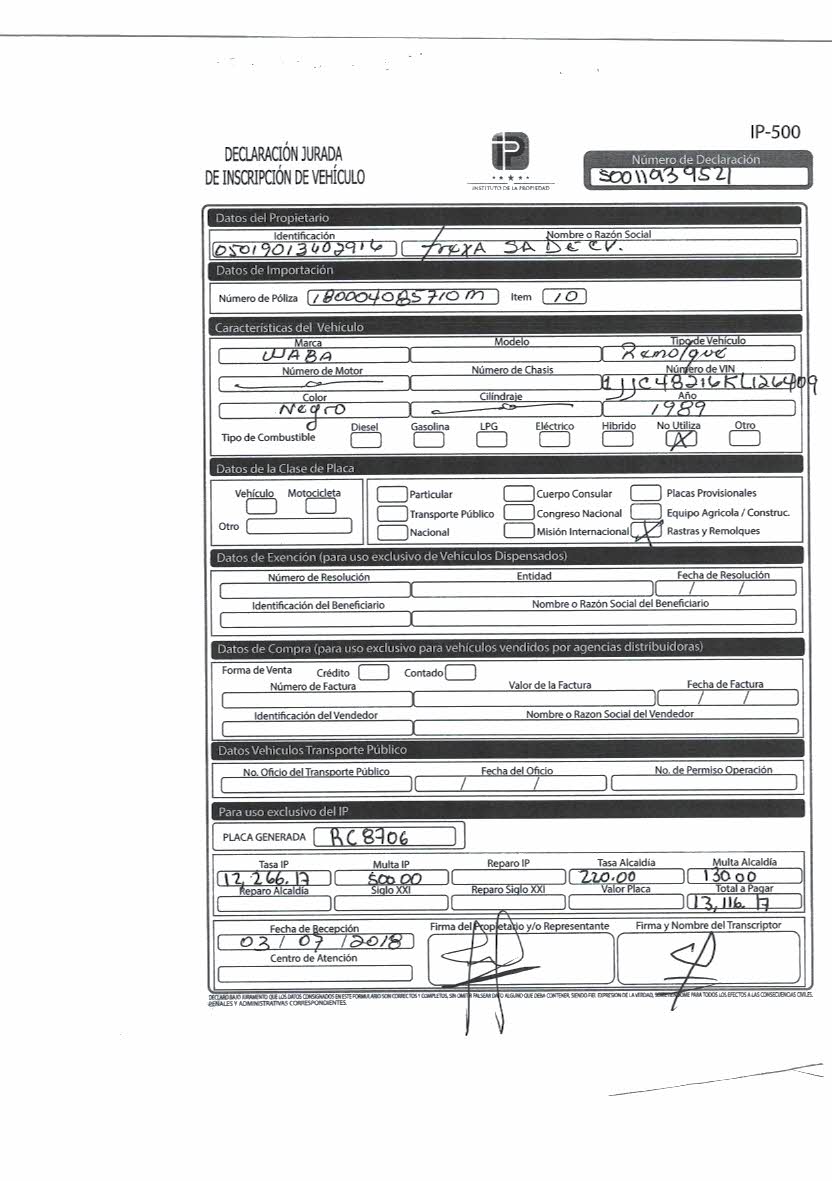 IP-500
DECLARACIÓN JURADA
DE INSCRIPCIÓN DE VEHÍCULO
INSTITUTO DE LA PROPIEDAD
Número de Declaración
50011939521
Datos del Propietario
Identificación Nombre o Razón Social
05019013402916 SA DE CV.
Datos de Importación
Número de Póliza 180004085710M Item 10
Características del Vehículo
Marca Modelo Tipo de Vehículo
WABA Remolque
Número de Motor Número de Chasis Número de VIN
1JJC48216KL126409
Color Cilíndraje Año
Negro 1989
Tipo de Combustible Diesel Gasolina LPG Eléctrico Hibrido No Utiliza Otro
X
Datos de la Clase de Placa
Vehículo Motocicleta
Otro
Particular Cuerpo Consular Placas Provisionales
Transporte Público Congreso Nacional Equipo Agricola / Construc.
Nacional Misión Internacional X Rastras y Remolques
Datos de Exención (para uso exclusivo de Vehículos Dispensados)
Número de Resolución Entidad Fecha de Resolución
/ /
Identificación del Beneficiario Nombre o Razón Social del Beneficiario
Datos de Compra (para uso exclusivo para vehículos vendidos por agencias distribuidoras)
Forma de Venta Crédito Contado
Número de Factura Valor de la Factura Fecha de Factura
/ /
Identificación del Vendedor Nombre o Razon Social del Vendedor
Datos Vehiculos Transporte Público
No. Oficio del Transporte Público Fecha del Oficio No. de Permiso Operación
/ /
Para uso exclusivo del IP
PLACA GENERADA RC8706
Tasa IP Multa IP Reparo IP Tasa Alcaldía Multa Alcaldía
12,266.17 500.00 220.00 130.00
Reparo Alcaldía Siglo XXI Reparo Siglo XXI Valor Placa Total a Pagar
13,116.17
Fecha de Recepción Firma del Propietario y/o Representante Firma y Nombre del Transcriptor
03/07/2018
Centro de Atención
DECLARO BAJO JURAMENTO QUE LOS DATOS CONSIGNADOS EN ESTE FORMULARIO SON CORRECTOS Y COMPLETOS, SIN OMITIR FALSEAR DATO ALGUNO QUE DEBA CONTENER, SIENDO FIEL EXPRESION DE LA VERDAD, SOMETIENDOME PARA TODOS LOS EFECTOS A LAS CONSECUENCIAS CIVILES,
PENALES Y ADMINISTRATIVAS CORRESPONDIENTES.